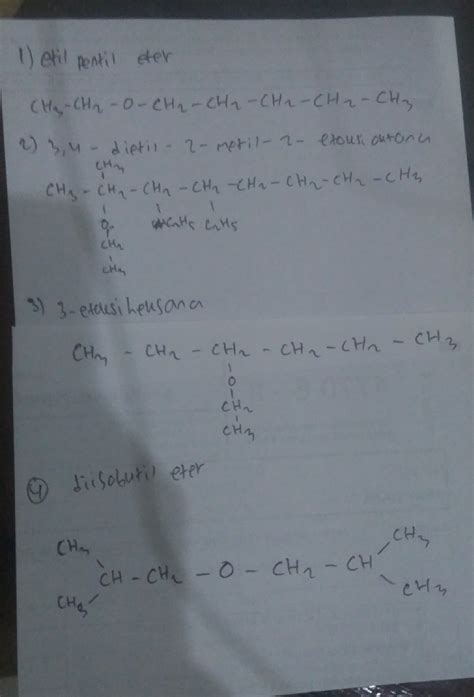 1) etil pentil eter
CH3-CH2-O-CH2-CH2-CH2-CH2-CH3
2) 3,4-dietil-2-metil-2-etoksioktana
CH3
CH3-CH2-CH2-CH2-CH2-CH2-CH2-CH3
O C2H5 C2H5
CH2
CH3
3) 3-etoksiheksana
CH3-CH2-CH2-CH2-CH2-CH3
O
CH2
CH3
4 diisobutil eter
CH3 CH3
CH-CH2-O-CH2-CH
CH3 CH3